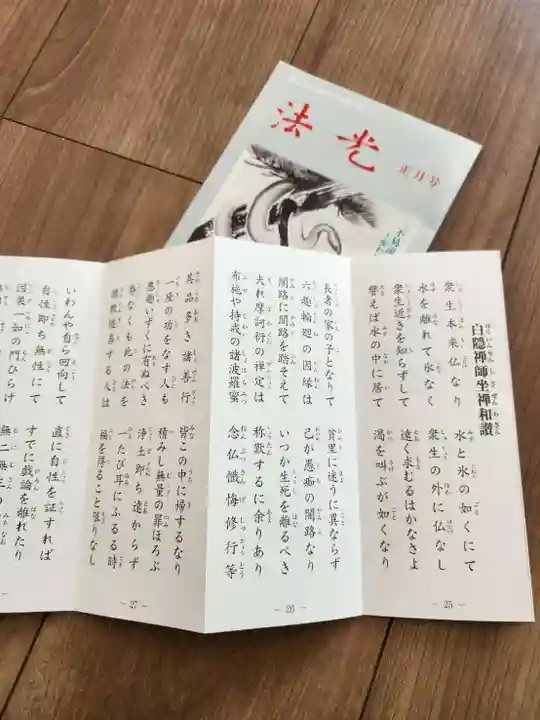 法光
正月号
白隠禅師坐禅和讃
衆生本来仏なり 水と氷の如くにて
水を離れて氷なく 衆生の外に仏なし
衆生近きを知らずして 遠く求むるはかなさよ
譬えば水の中に居て 渇を叫ぶが如くなり
- 25 -
長者の家の子となりて 貧里に迷うに異ならず
六趣輪廻の因縁は 己が愚痴の闇路なり
闇路に闇路を踏そえて いつか生死を離るべき
夫れ摩訶衍の禅定は 称歎するに余りあり
布施や持戒の諸波羅蜜 念仏懺悔修行等
- 26 -
其品多き諸善行 皆この中に帰するなり
一座の功をなす人も 積みし無量の罪ほろぶ
悪趣いずくに有ぬべき 浄土即ち遠からず
辱なくも此の法を 一たび耳にふるる時
讃歎随喜する人は 福を得ること限りなし
- 27 -
いわんや自ら回向して 直に自性を証すれば
自性即ち無性にて すでに戯論を離れたり
因果一如の門ひらけ 無二無三の